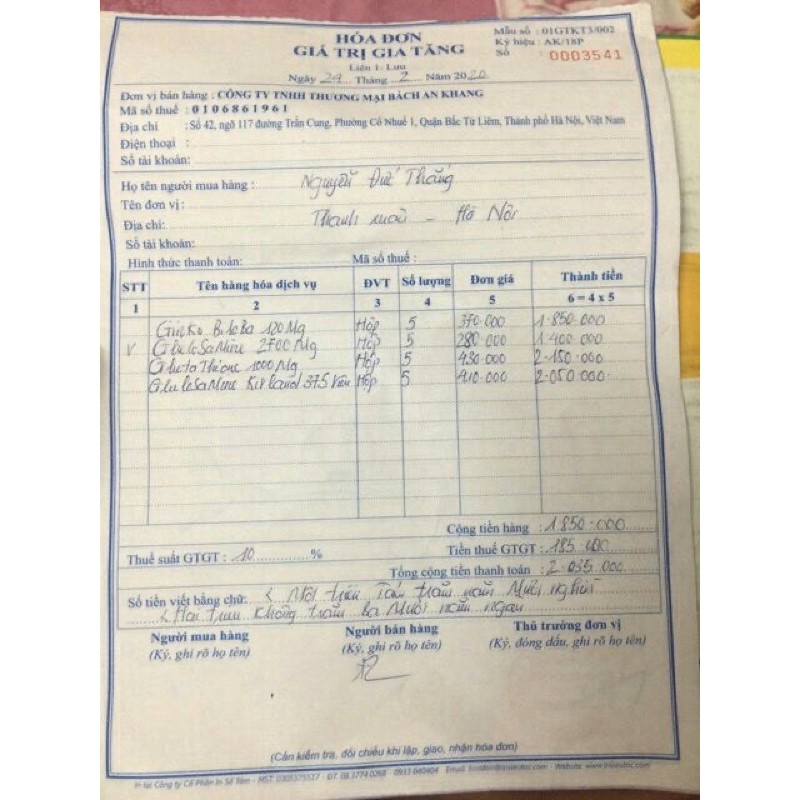 HÓA ĐƠN
GIÁ TRỊ GIA TĂNG
Liên 1: Lưu
Ngày 29 Tháng 7 Năm 2020
Mẫu số : 01GTKT3/002
Ký hiệu : AK/18P
Số : 0003541
Đơn vị bán hàng : CÔNG TY TNHH THƯƠNG MẠI BÁCH AN KHANG
Mã số thuế : 0106861961
Địa chỉ : Số 42, ngõ 117 đường Trần Cung, Phường Cổ Nhuế 1, Quận Bắc Từ Liêm, Thành phố Hà Nội, Việt Nam
Điện thoại :
Số tài khoản:
Họ tên người mua hàng : Nguyễn Đức Thắng
Tên đơn vị :
Địa chỉ: Thanh xuân - Hà Nội
Số tài khoản:
Hình thức thanh toán: Mã số thuế :
STT Tên hàng hóa dịch vụ ĐVT Số lượng Đơn giá Thành tiền
1 2 3 4 5 6 = 4 x 5
120 Mg Hộp 5 370.000 1.850.000
V GluleSaMine 2700 Mg Hộp 5 280.000 1.400.000
GlutaThione 1000 Mg Hộp 5 430.000 2.150.000
GluleSaMine Kirland 375 Viên Hộp 5 410.000 2.050.000
Cộng tiền hàng : 1.850.000
Thuế suất GTGT : 10 % Tiền thuế GTGT : 185.000
Tổng cộng tiền thanh toán : 2.035.000
Số tiền viết bằng chữ: Một triệu Tám trăm năm Mươi nghìn
Hai triệu không trăm ba Mươi năm ngàn
Người mua hàng Người bán hàng Thủ trưởng đơn vị
(Ký, ghi rõ họ tên) (Ký, ghi rõ họ tên) (Ký, đóng dấu, ghi rõ họ tên)
(Cần kiểm tra, đối chiếu khi lập, giao, nhận hóa đơn)
In tại Công ty Cổ Phần In Số Tám - MST: - ĐT: 08.3774 0268 - 0933 640404